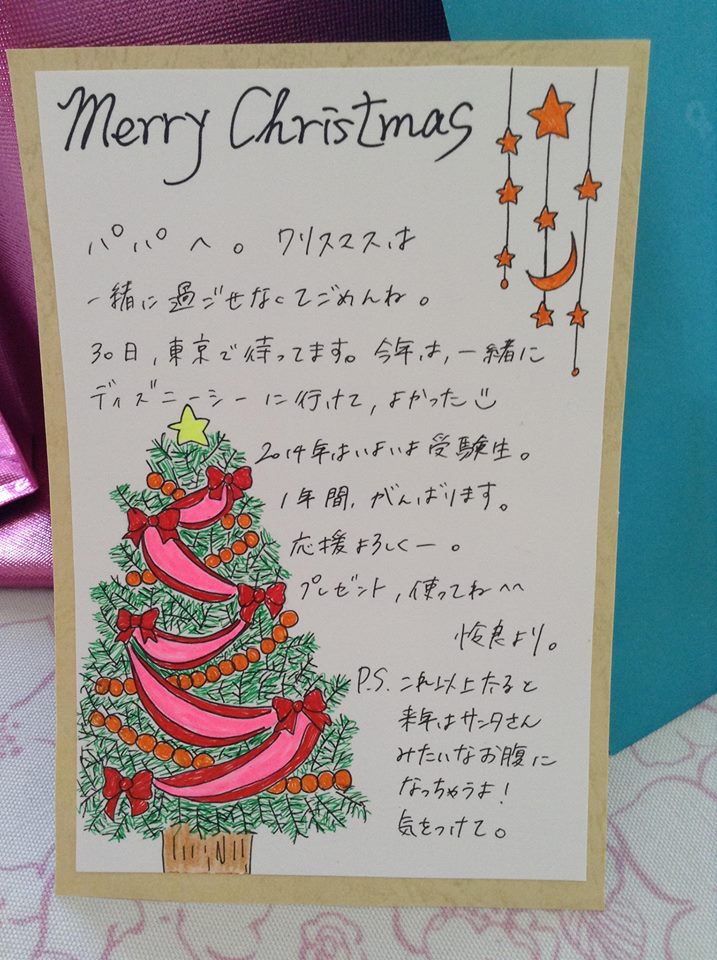 Merry Christmas
パパへ。クリスマスは
一緒に過ごせなくてごめんね。
30日，東京で待ってます。今年は，一緒に
ディズニーシーに行けて，よかった
2014年はいよいよ受験生。
1年間，がんばります。
応援よろしくー。
プレゼント，使ってねへへ
怜良より。
P.S. これ以上太ると
来年はサンタさん
みたいなお腹に
なっちゃうよ！
気をつけて。